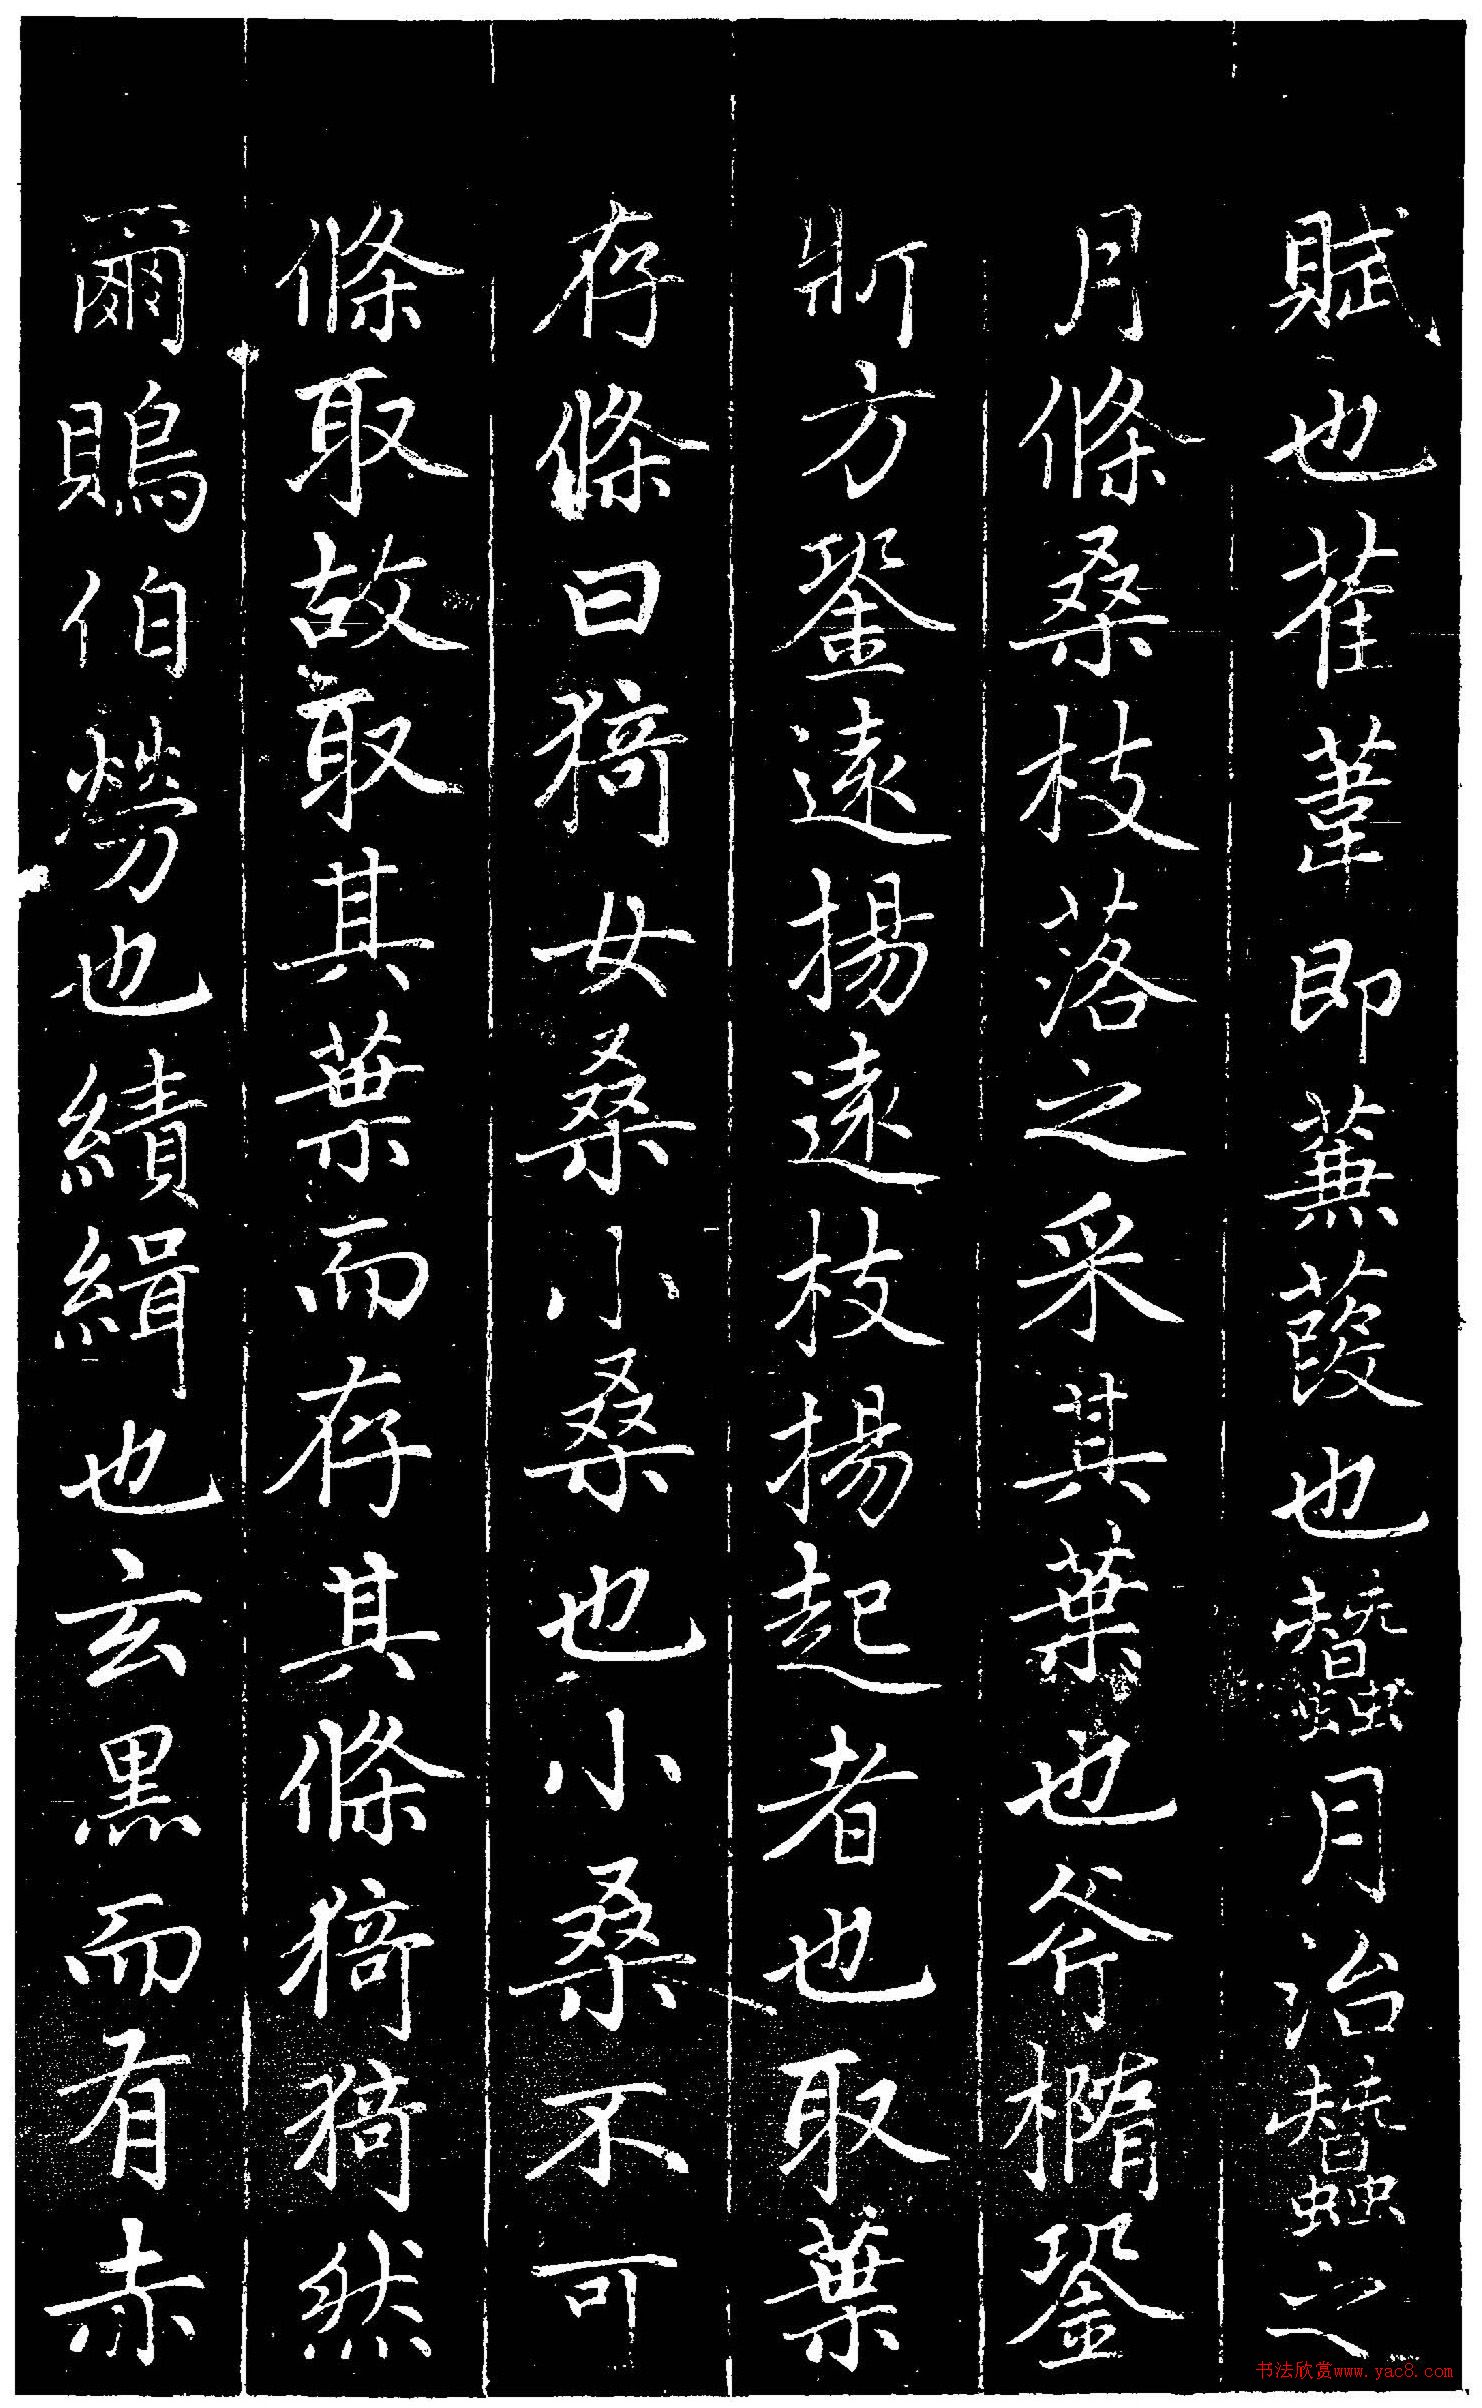 賦也萑葦即蒹葭也蠶月治蠶之
月條桑枝落之采其葉也斧橢銎
斨方銎遠揚遠枝揚起者也取葉
存條曰猗女桑小桑也小桑不可
條取故取其葉而存其條猗猗然
爾鵙伯勞也績緝也玄黑而有赤
书法欣赏www.yac8.com